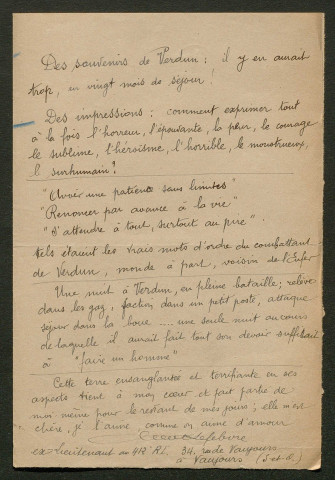 Des souvenirs de Verdun : il y en aurait
trop, en vingt mois de séjour !
Des impressions : comment exprimer tout
à la fois l'horreur, l'épouvante, la peur, le courage
le sublime, l'héroïsme, l'horrible, le monstrueux,
l surhumain ?
"Avoir une patience sans limites"
"Renoncer par avance à la vie"
"S'attendre à tout, surtout au pire".
tels étaient les vrais mots d'ordre du combattant
de Verdun, monde à part, voisin de l'Enfer
Une nuit à Verdun, en pleine bataille ; relève
dans les gaz, faction dans un petit poste, attaque
séjour dans la boue .... une seule nuit au cours
de laquelle il aurait fait tout son devoir suffisait
à "faire un homme"
Cette terre ensanglantée et terrifiante en ses
aspects tient à mon cœur et fait partie de
moi-même pour le restant de mes jours ; elle m'est
chère, je l'aime comme on aime d'amour
Lefebvre
ex-lieutenant au 412e R.I. 34, rue de Vaujours
à Vaujours (S-et-O.)